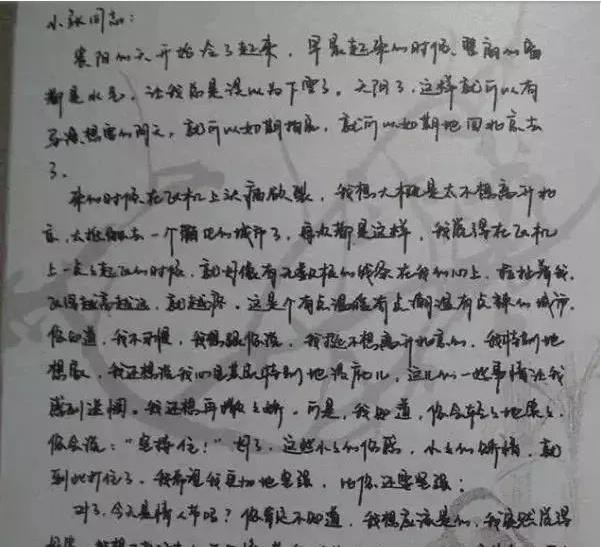 小耿同志：
襄阳的天开始冷了起来，早晨起来的时候，整扇的窗
都是水气，让我总是误以为下雪了。天阴了，这样就可以有
导演想要的阴天，就可以如期拍戏，就可以如期地回北京去
了。
来的时候在飞机上头痛欲裂，我想大概是太不想离开北
京，去抵触去一个陌生的城市了，每次都是这样，我觉得在飞机
上一点点起飞的时候，就好像有无数根的线系在我的心上，拉扯着我，
飞得越高越远，就越疼。这是个有点温暖有点潮湿有点辣的城市，
你知道，我不习惯，我想跟你说，我挺不想离开北京的，我特别地
想家，我还想说我心里其实特别地没底儿，这儿的一些事情让我
感到迷惘。我还想再撒点娇。可是，我知道，你会轻轻地
你会说："坚持住！"对了，这些小小的伤感，小小的矫情，就
到此打住了。我希望我更加地坚强，比你还要坚强；
对了，今天是情人节吗？你肯定不知道，我想应该是的，我突然觉得